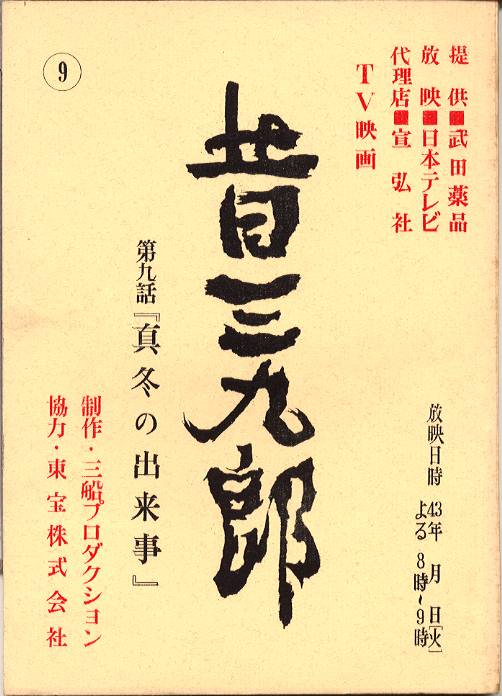 提供■武田薬品
放映■日本テレビ
代理店■宣弘社
TV映画
放映日時 43年 月 日[火]
よる 8時~9時
昔三九郎
第九話『真冬の出来事』
制作・三船プロダクション
協力・東宝株式会社
⑨